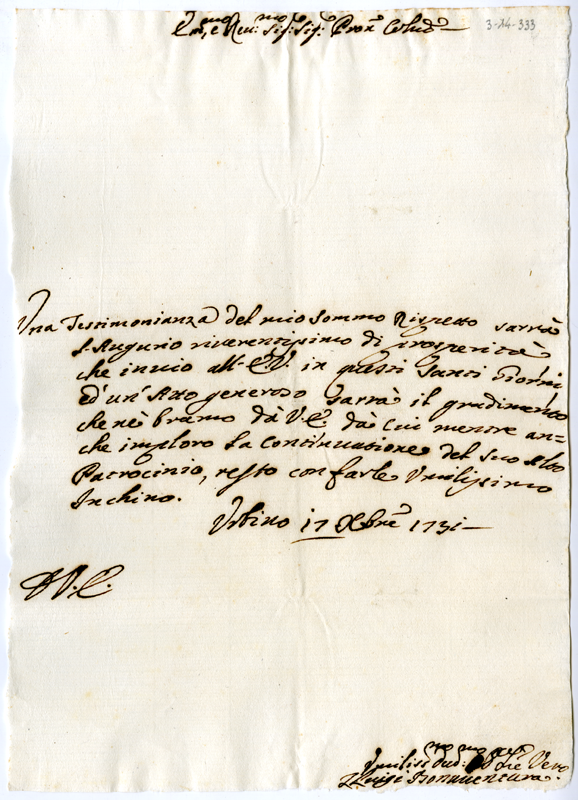 Em.mo, e Reu.mo Sig.r Sig.r Pron Colmo
3-14-333
Una Testimonianza del mio Sommo Rispetto sarrà
l'Augurio riverentissimo di prosperità
che invio all'E.V. in questi Santi Giorni
ed' un' Atto generoso sarrà il gradimento
che ne bramo dà V.E. dà cui mentre an-
che imploro la Continuatione del Suo Alto
Patrocinio, resto con farle Umilissimo
Inchino.
Urbino 17 Xbre 1731
D V.E.
Umiliss.mo Deu.mo Ser Vero
Luigi Bonaventura